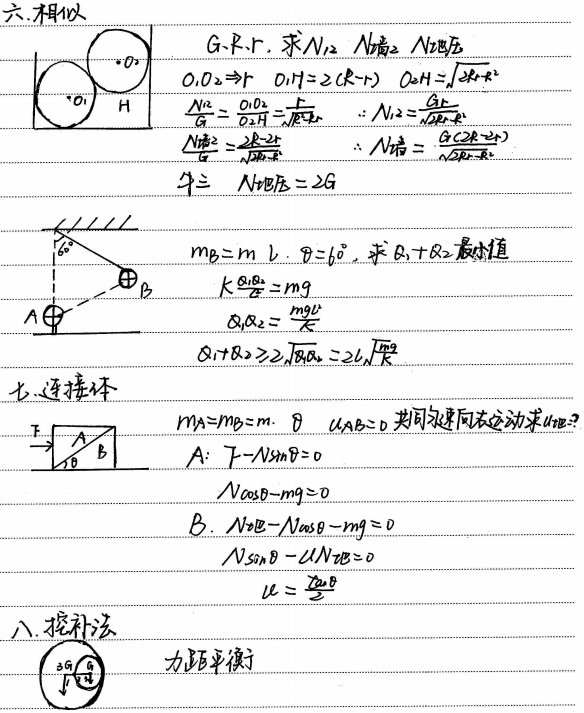 六.相似
G.R.r. 求N12 N墙2 N地压
O1O2⇒r O1H=2(R-r) O2H=√2Rr-R²
N12/G=O1O2/O2H=r/√R²-Rr ∴N12=Gr/√2Rr-R²
N墙2/G=2R-2r/√2Rr-R² ∴N墙=G(2R-2r)/√2Rr-R²
牛三 N地压=2G
O2
O1 H
60°
B
A
mB=m L. θ=60°, 求Q1+Q2最小值
KQ1Q2/L²=mg
Q1Q2=mgL²/K
Q1+Q2≥2√Q1Q2=2L√mg/K
七.连接体
mA=mB=m. θ uAB=0 共同匀速向右运动求u地=?
F A B θ
A: F-Nsinθ=0
Ncosθ-mg=0
B. N地-Ncosθ-mg=0
Nsinθ-uN地=0
u=tanθ/2
八.挖补法
力距平衡
3G G